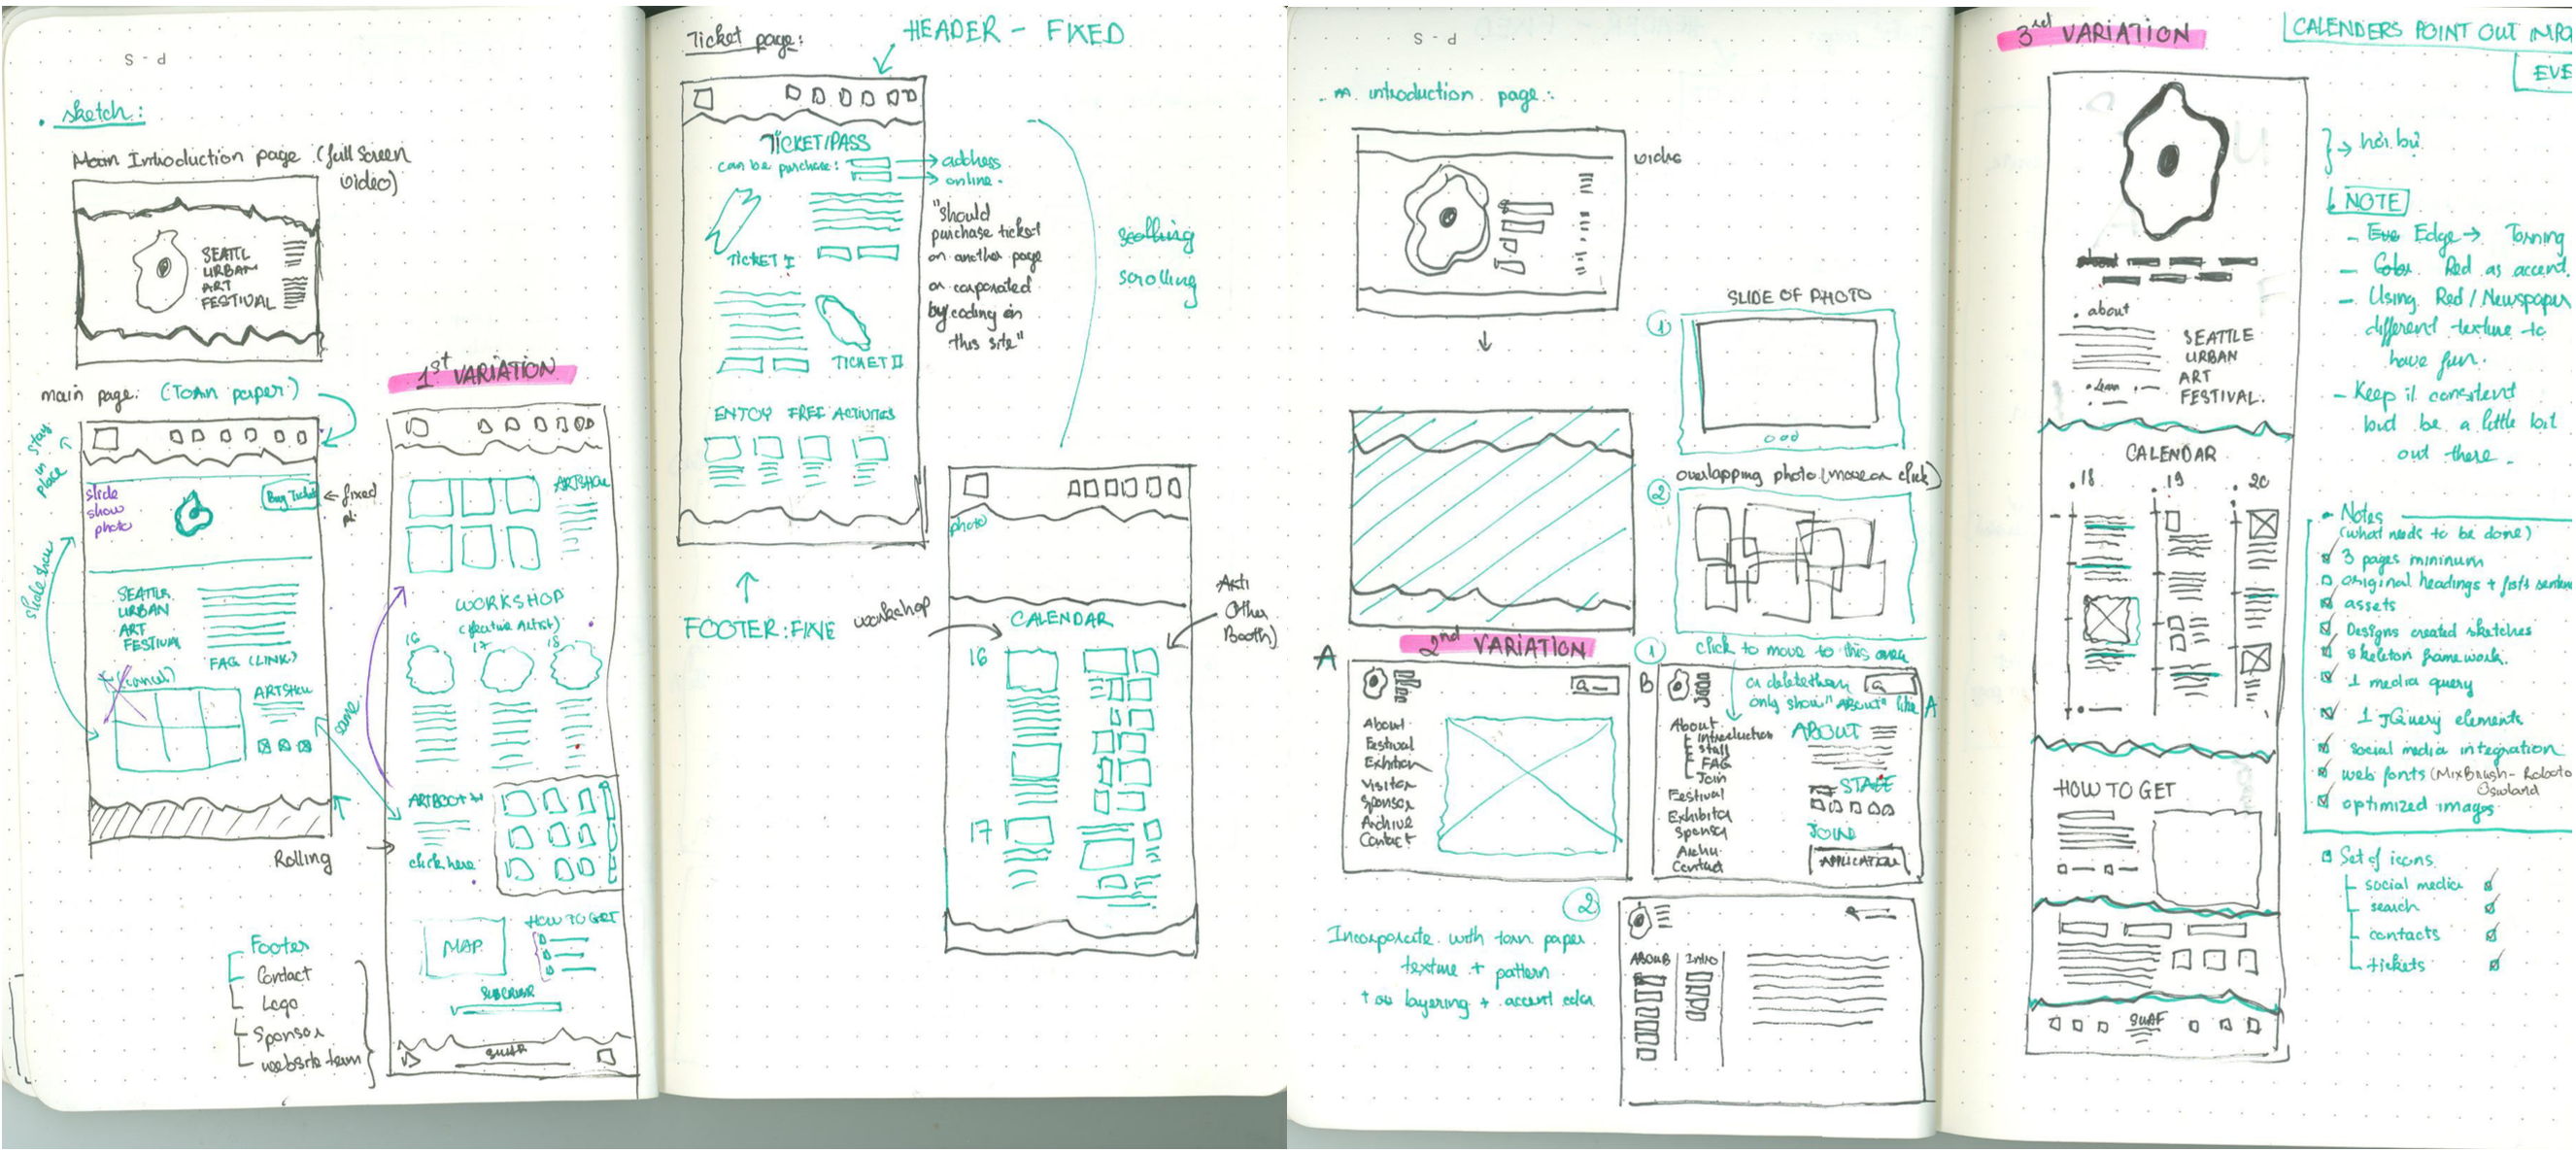 S - d
. sketch:
Main Introduction page (full screen
video)
SEATTL
URBAN
ART
FESTIVAL
main page: (Torn paper)
1st VARIATION
stay
in
place
slide
show
photo
Buy Ticket
fixed
slide show
SEATTLE
URBAN
ART
FESTIVAL
FAQ (LINK)
(cancel)
ARTSHOW
same
Rolling
Footer
Contact
Logo
Sponsor
website team
ARTSHOW
WORKSHOP
(feature Artist)
16
17
18
ARTBOOTH
click here
MAP
HOW TO GET
SUBCRIBE
SUAF
Ticket page:
HEADER - FIXED
TICKET/PASS
can be purchase:
address
online.
TICKET I
"should
purchase ticket
on another page
or corporated
by coding in
this site"
scrolling
TICKET II
ENJOY FREE ACTIVITIES
FOOTER: FINE
photo
workshop
CALENDAR
Other
Booth)
16
17
S - d
introduction page:
video
SLIDE OF PHOTO
1
overlapping photo (move on click)
2
2nd VARIATION
A
About
Festival
Exhibition
Visitor
Sponsor
Archive
Contact
1
click to move to this area
B
only show "ABOUT" like A
About
Introduction
Staff
FAQ
Join
Festival
Exhibitor
Sponsor
Contact
ABOUT
STAFF
JOIN
APPLICATION
2
Incorporate with torn paper
texture + pattern
layering + accent color
ABOUT
Intro
3rd VARIATION
CALENDERS POINT OUT IMPO
EVE
about
SEATTLE
URBAN
ART
FESTIVAL.
hơi bự
NOTE
- Eve Edge → Torning
- Color Red as accent.
- Using Red / Newspaper
different texture to
have fun.
- Keep it consitent
but be a little bit
out there.
CALENDAR
.18
.19
.20
- Notes
(what needs to be done)
3 pages mininum
original headings + firsts senten
assets
Designs created sketches
skeleton framework.
1 media query
1 JQuery elements
social media integration
web fonts (MixBrush - Roboto
Oswland
optimized images
HOW TO GET
Set of icons
social media
search
contacts
tickets
SUAF